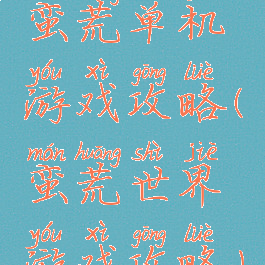 蛮荒单机
yóu xì gōng lüè
游戏攻略(
mán huāng shì jiè
蛮荒世界
yóu xì gōng lüè
游戏攻略)